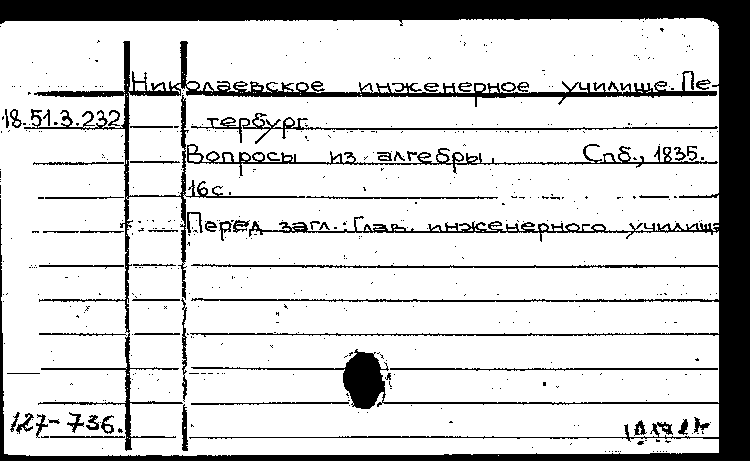 Николаевское инженерное училище. Пе-
18.51.3.232 тербург.
Вопросы из алгебры. Спб., 1835.
16с.
Перед загл.: Глав. инженерного училища
127-736.